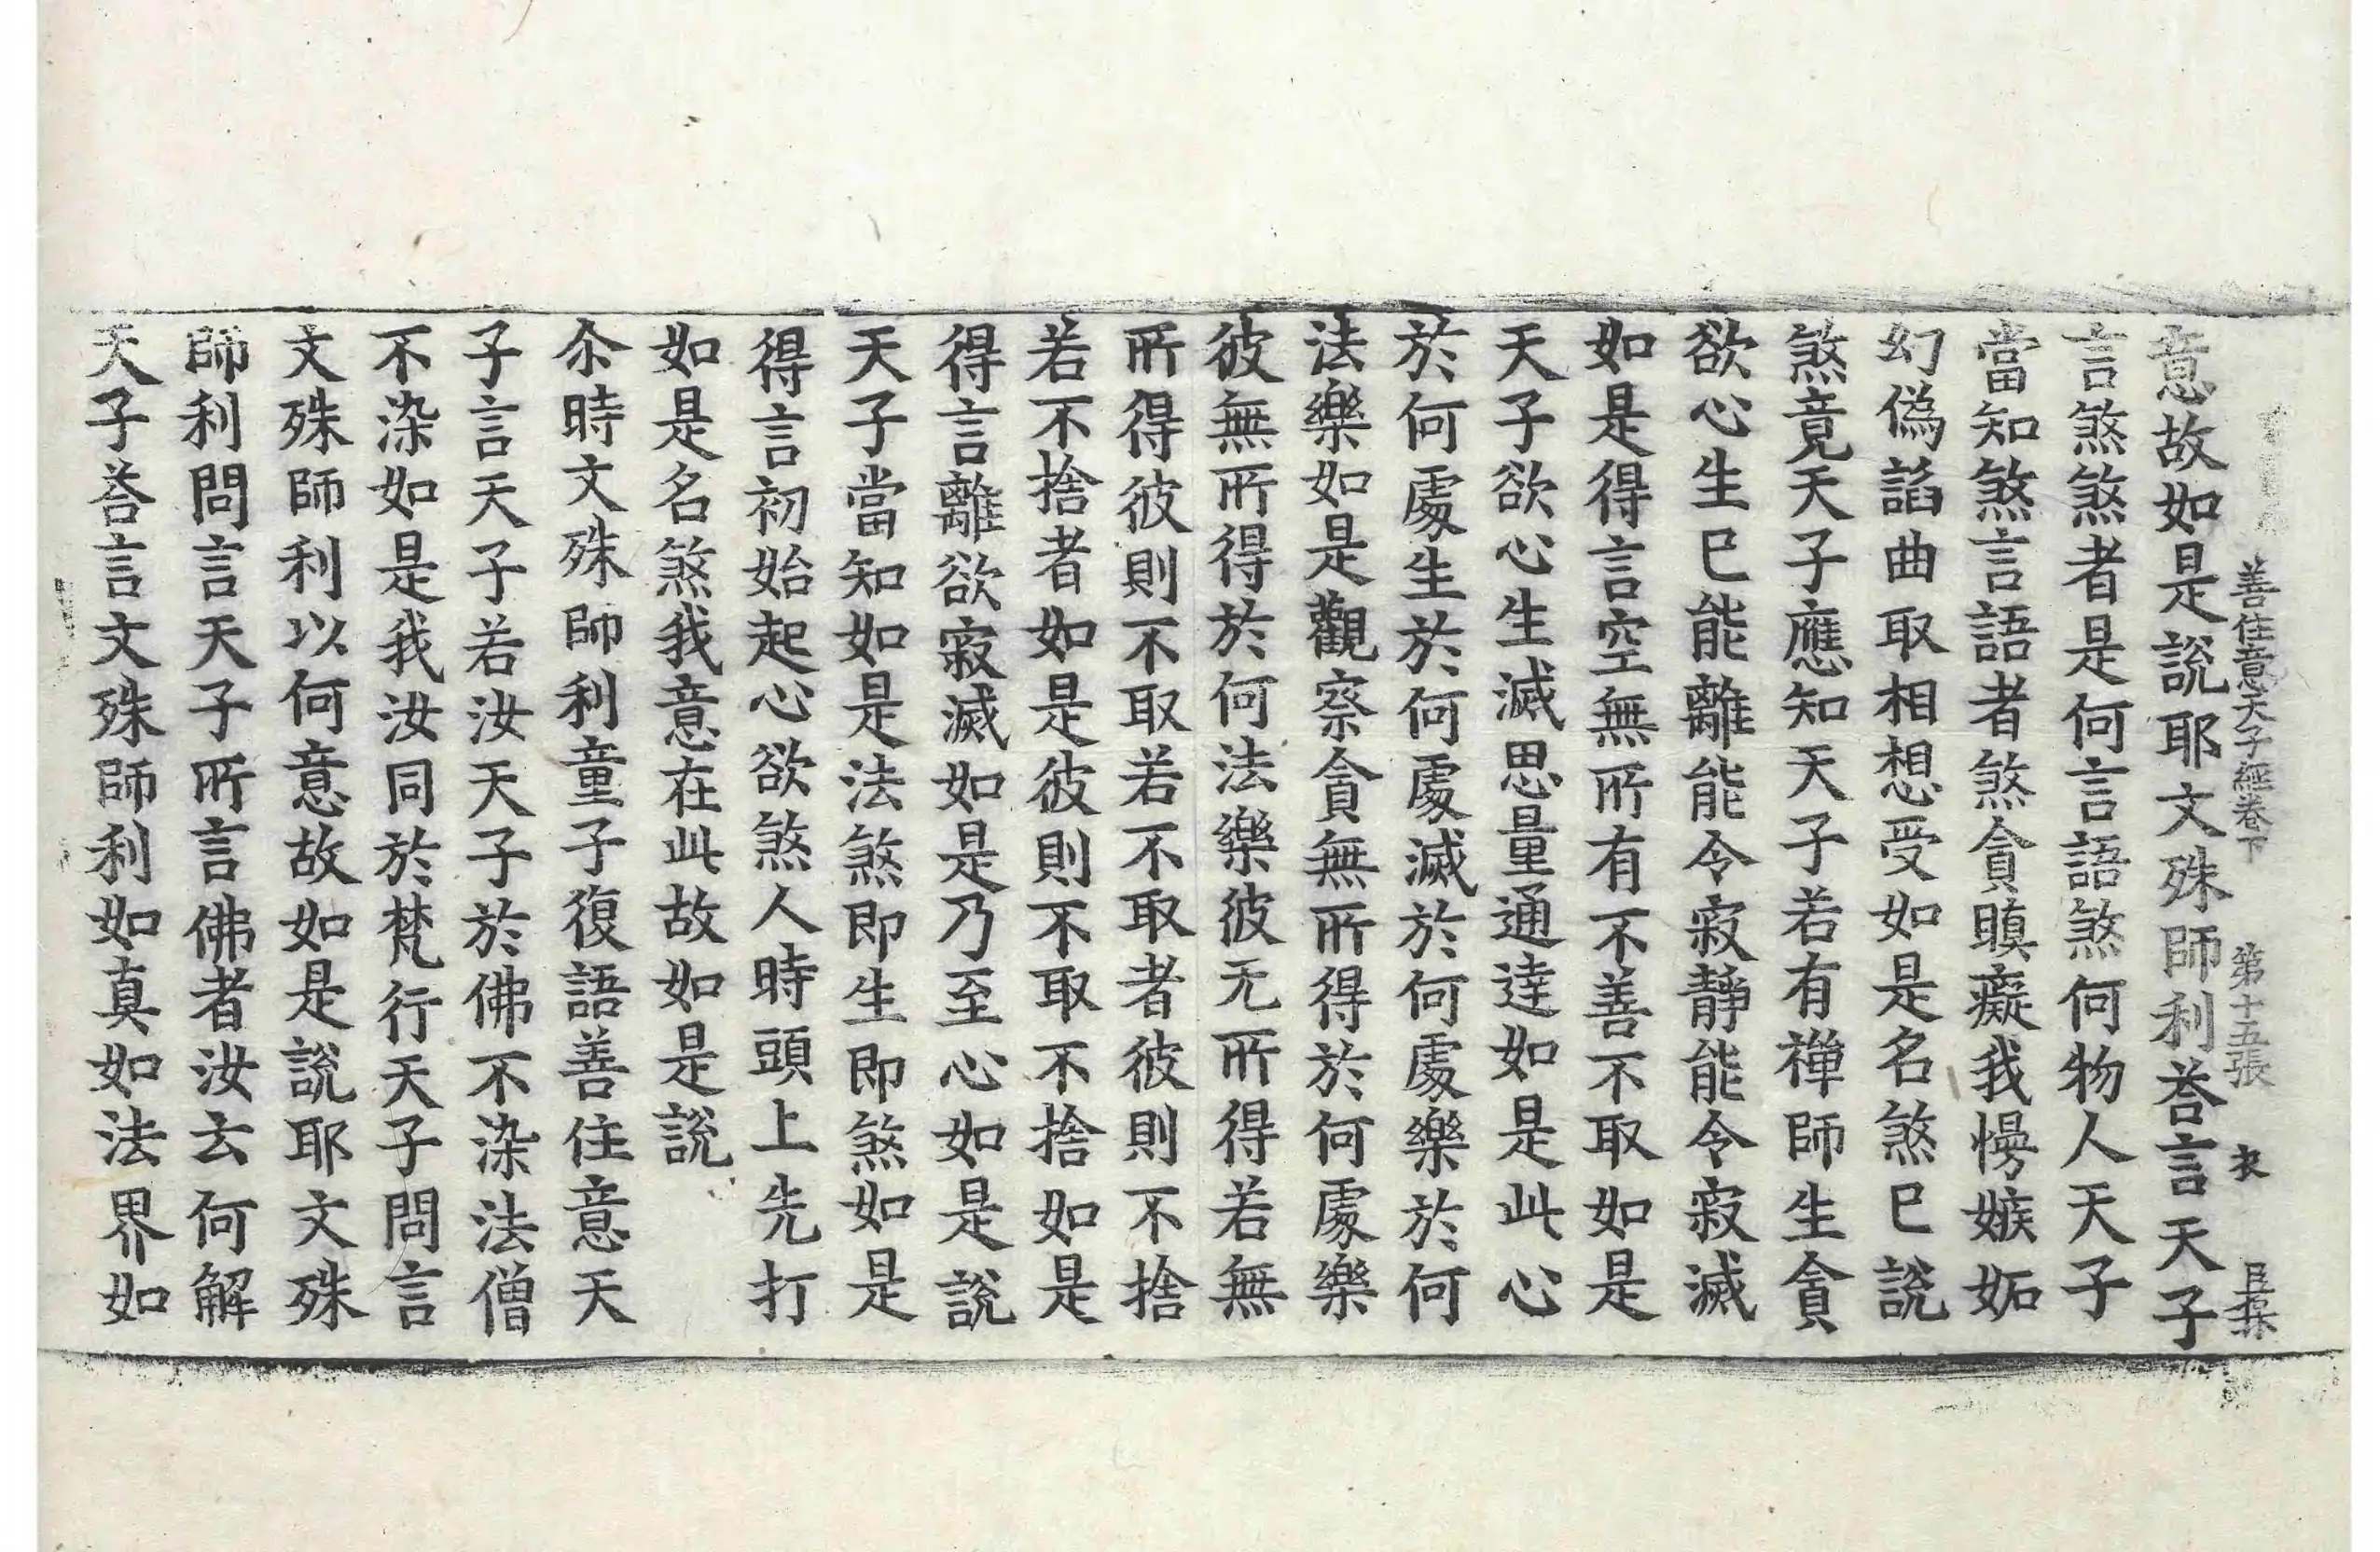 善住意天子經卷下 第十五張 衣
意故如是說耶文殊師利荅言天子
言煞煞者是何言語煞何物人天子
當知煞言語者煞貪瞋癡我慢嫉妬
幻僞諂曲取相想受如是名煞已說
煞竟天子應知天子若有禪師生貪
欲心生已能離能令寂靜能令寂滅
如是得言空無所有不善不取如是
天子欲心生滅思量通達如是此心
於何處生於何處滅於何處樂於何
法樂如是觀察貪無所得於何處樂
彼無所得於何法樂彼无所得若無
所得彼則不取若不取者彼則不捨
若不捨者如是彼則不取不捨如是
得言離欲寂滅如是乃至心如是說
天子當知如是法煞即生即煞如是
得言初始起心欲煞人時頭上先打
如是名煞我意在此故如是說
尒時文殊師利童子復語善住意天
子言天子若汝天子於佛不染法僧
不染如是我汝同於梵行天子問言
文殊師利以何意故如是說耶文殊
師利問言天子所言佛者汝云何解
天子荅言文殊師利如真如法界如